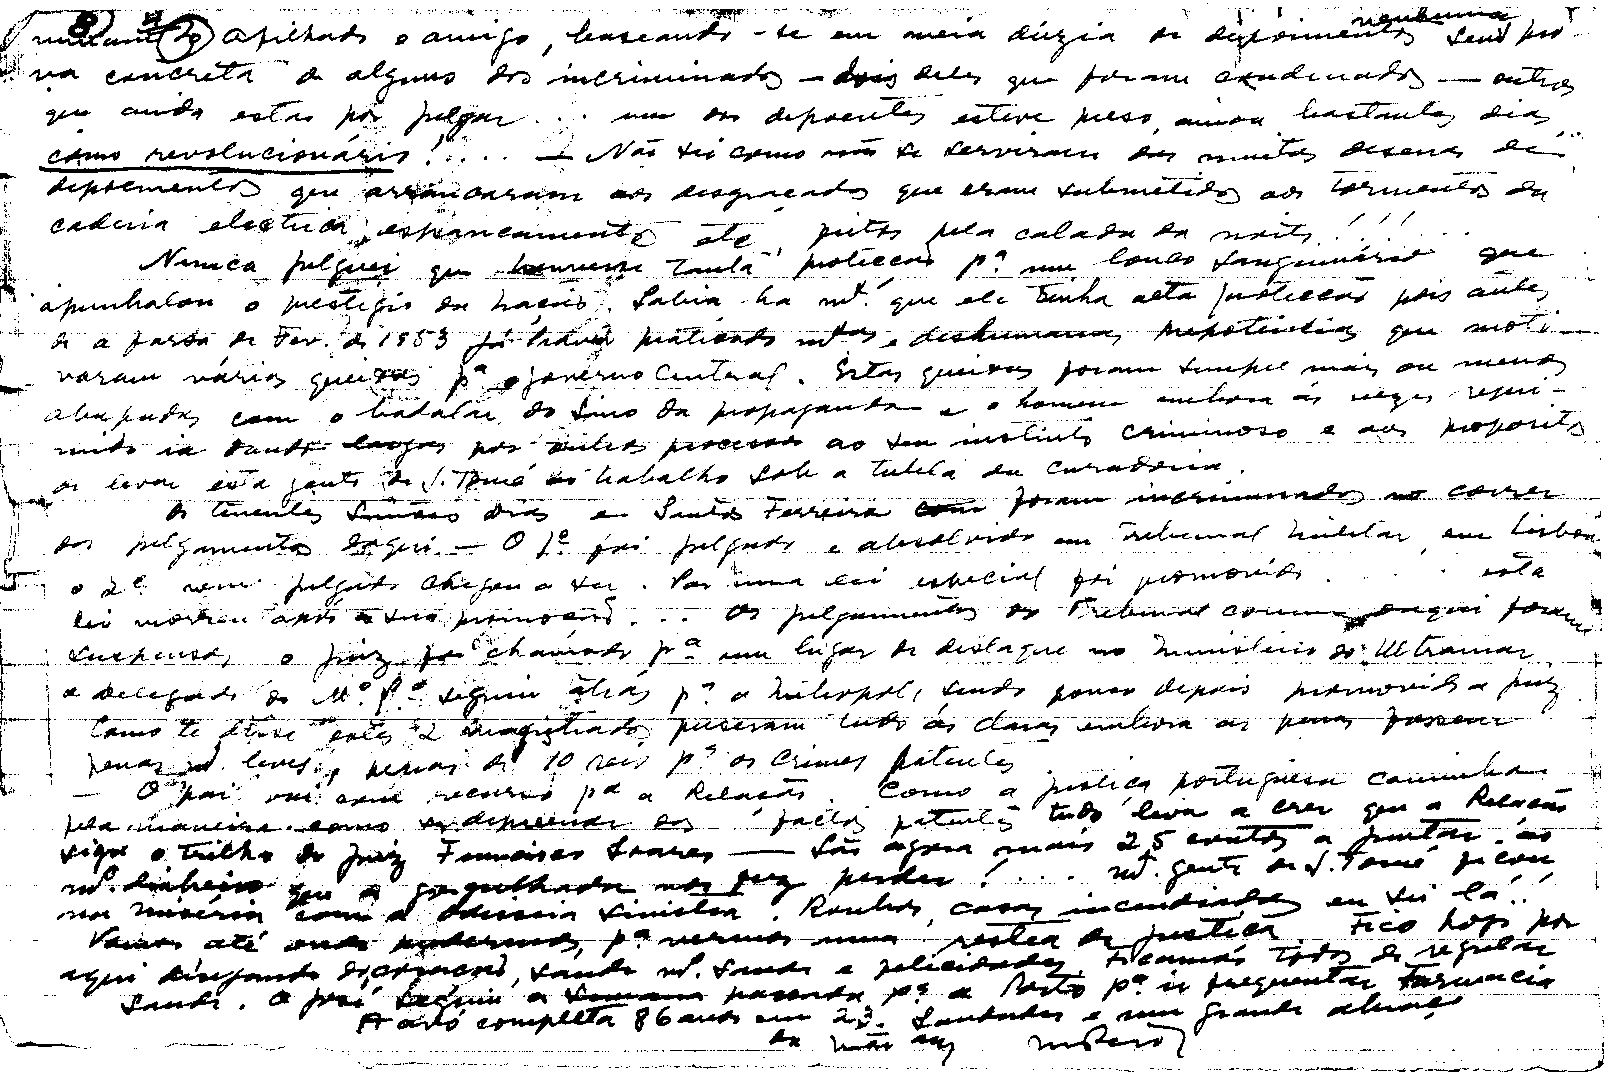 afilhado e amigo, baseando-se em meia dúzia de depoimentos sem nenhuma pro-
va concreta de alguns dos incriminados — dois deles que foram condenados — outros
que ainda estão por julgar... um dos depoentes esteve preso, ainda bastantes dias,
como revolucionário!.... — Não sei como não se serviram das muitas desenas de
depoimentos que arrancaram aos desgraçados que eram submetidos aos tormentos da
cadeira electrica, espancamentos etc, feitos pela calada da noite!!!...
Nunca julguei que houvesse tanta protecção pª um louco sanguinário que
apunhalou o prestigio da nação. Sabia ha mtº. que ele tinha alta protecção pois antes
de a farsa de Fev. de 1953 já havia praticado mtas e deshumanas prepotencias que moti-
varam várias queixas pª o governo Central. Estas queixas foram sempre mais ou menos
abafadas com o badalar do sino da propaganda e o homem embora ás vezes repri-
mido ia dando largas por outros processos ao seu instinto criminoso e aos propositos
de levar esta gente de S. Tomé ao trabalho sob a tutela da curadoria.
Os tenentes Simão Dias e Santos Ferreira foram incriminados no correr
dos julgamentos daqui. — O 1º foi julgado e absolvido em Tribunal Militar, em Lisboa
o 2º nem julgado chegou a ser. Por uma lei especial foi promovido.... esta
lei morreu após a sua promoção... Os julgamentos do Tribunal comum daqui foram
suspensos, o juiz foi chamado pª um lugar de destaque no Ministério do Ultramar
o delegado do Mº. Pº. seguiu atrás pª a Metropole, sendo pouco depois promovido a juiz
Como te disse estes 2 magistrados puseram tudo ás claras embora as penas fossem
penas mtº. leves, penas de 10 reis pª os crimes patentes
— O pai vai com recurso pª a Relação. Como a justiça portuguesa caminha
pela maneira como se depreende dos factos patentes tudo leva a crer que a Relação
siga o trilho do juiz Francisco Soares — São agora mais 25 contos a juntar ao
mtº. dinheiro que a gorgulhada nos fez perder!.... mtª. gente de S. Tomé ficou
na miséria com a odisseia sinistra. Roubos, casas incendiadas eu sei lá!..
Vamos até onde pudermos, pª vermos uma restea de justiça. Fico hoje por
aqui desejando do coração, saude mtª. saude e felicidades. Ficamos todos de regular
saude. O José seguiu a semana passada pª o Porto pª ir frequentar Farmacia
A avó completa 86 anos em 23. Saudades e um grande abraço
da mãe